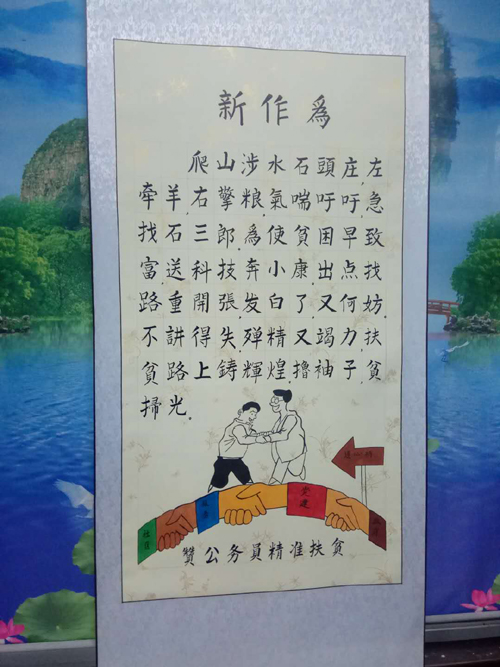 新作為
爬山涉水石頭庄,左
牽羊,右擎粮,氣喘吁吁,急
找石三郎,為使貧困早致
富,送科技奔小康,出点找
路重開張,发白了又何妨,
不計得失,殫精又竭力,扶
貧路上鋳輝煌,擼袖子,貧
掃光.
党建
贊公务員精准扶貧